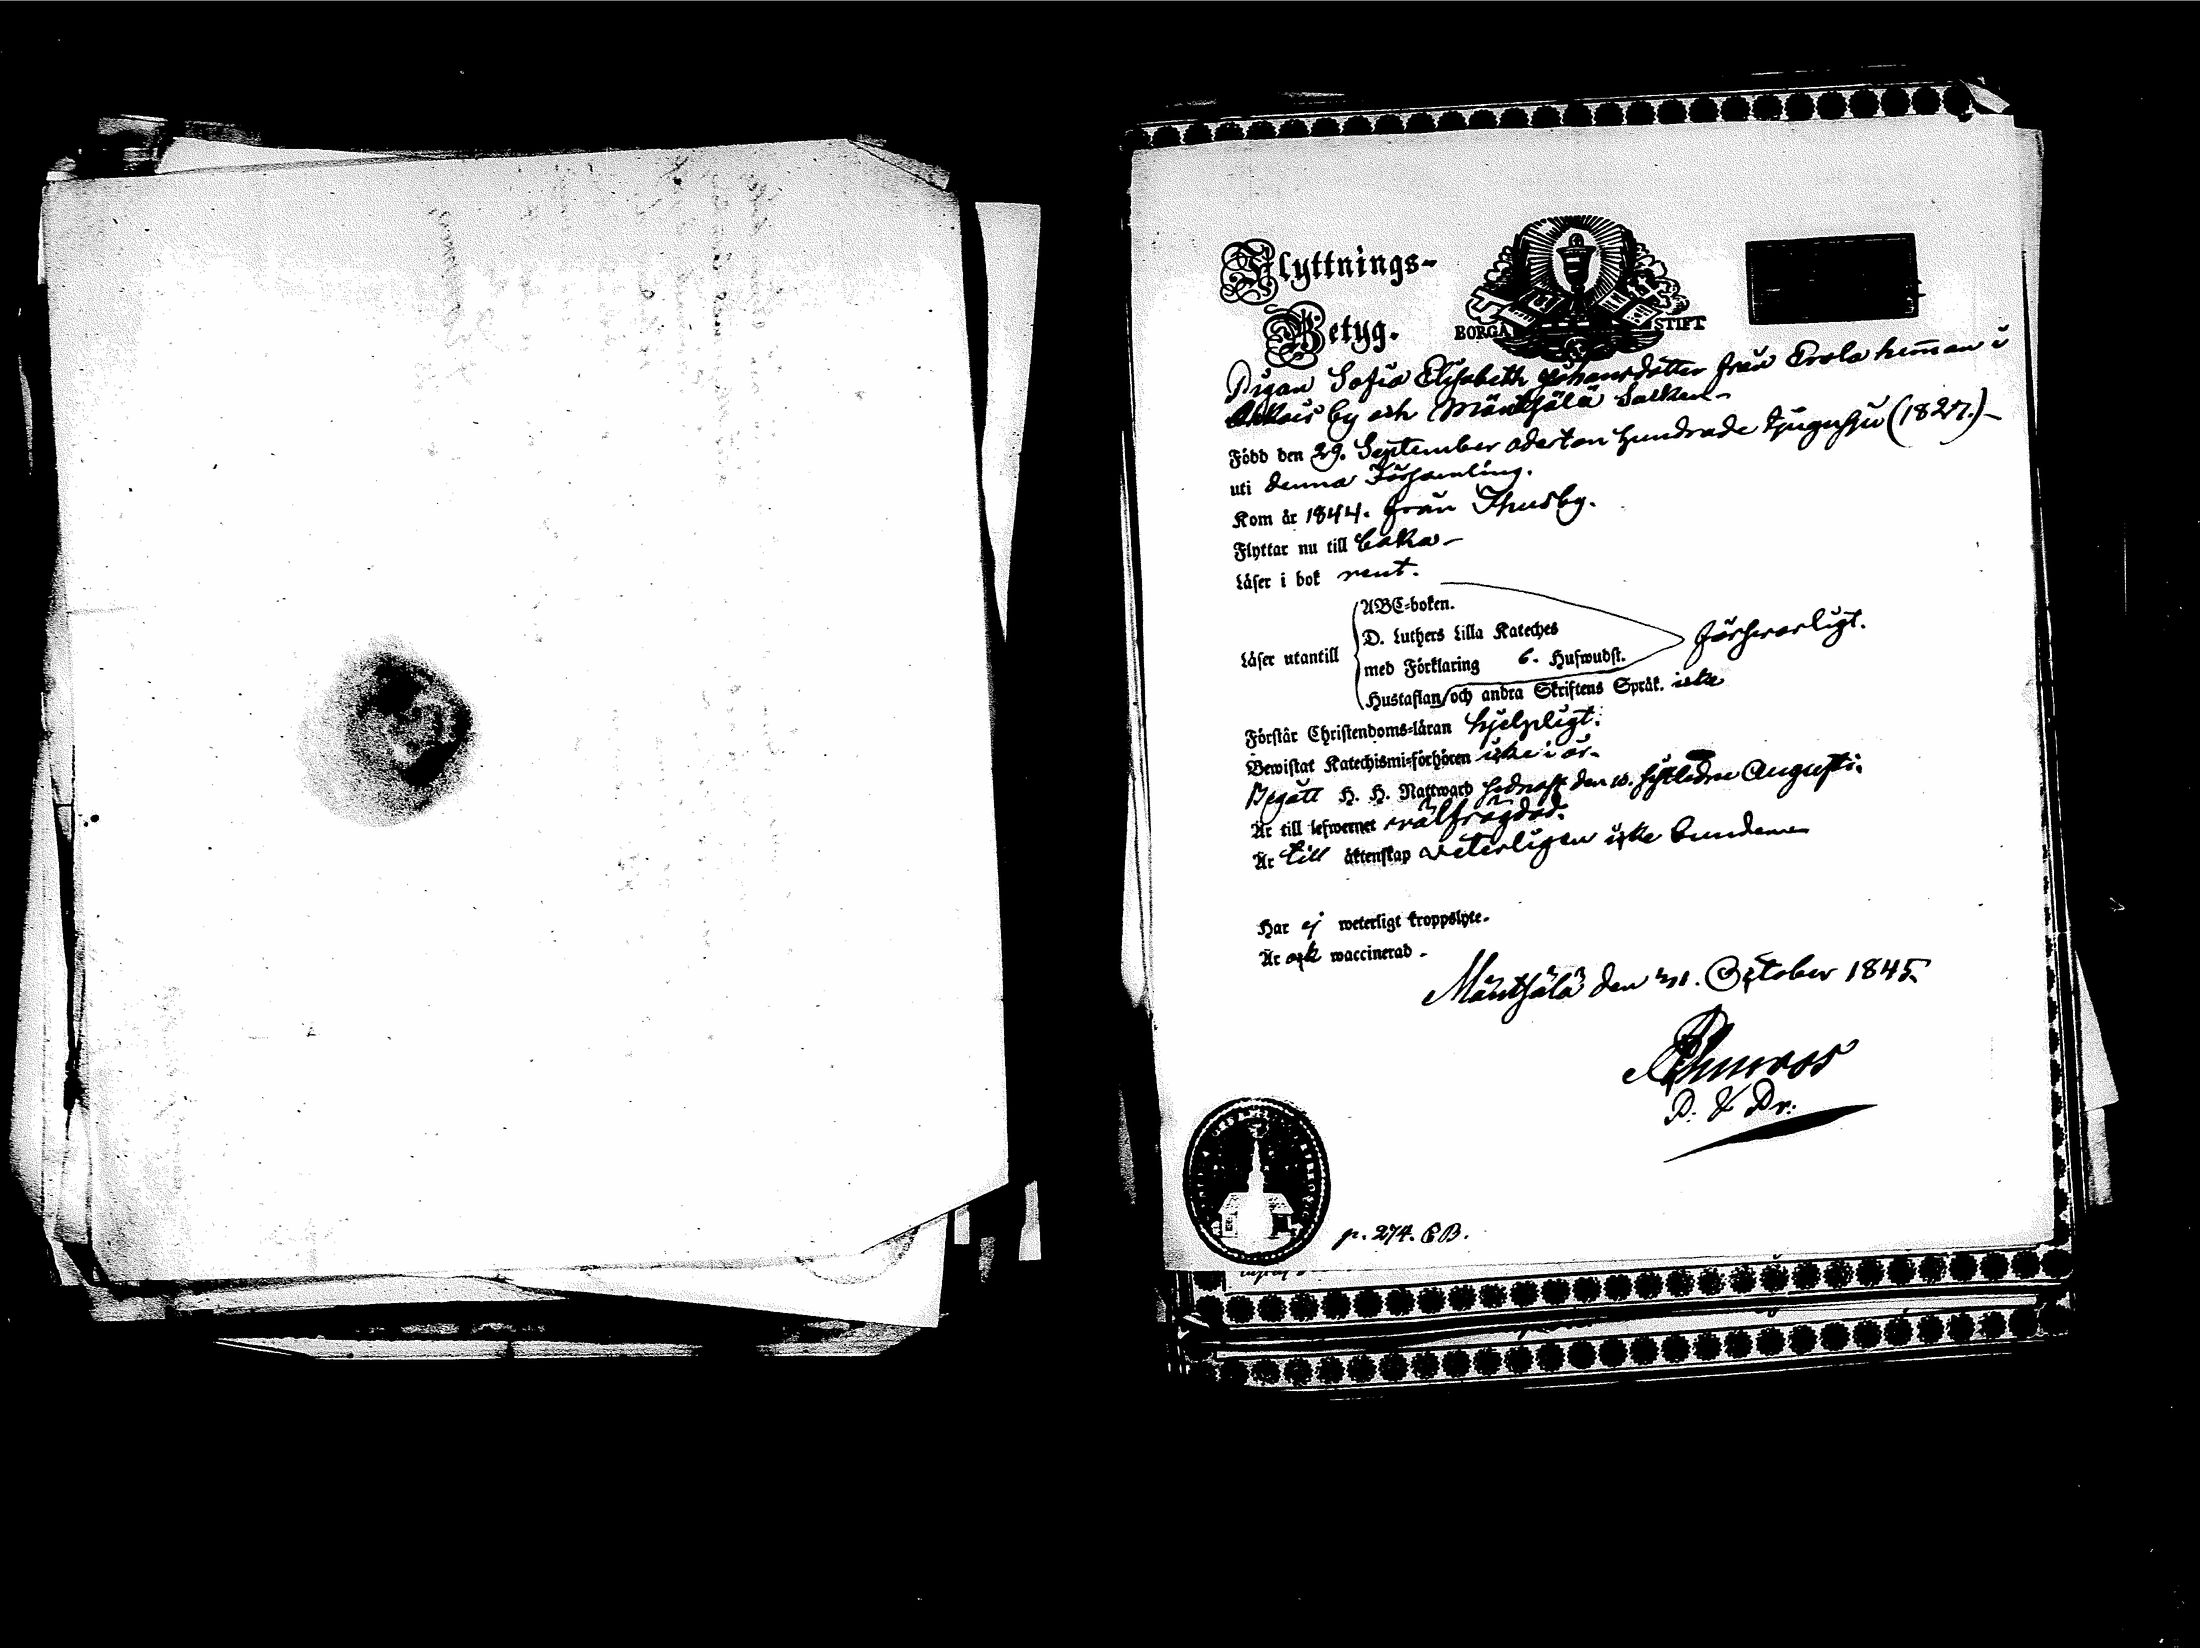 Flyttnings-
Betyg.
BORGÅ STIFT
Pigan Sofia Elisabeth Johansdotter från Erola heman i
by och Mäntsälä Socken -
Född den 29. September aderton hundrade tjugusju (1827.) -
uti denna Församling.
Kom år 1844. från Thusby.
Flyttar nu till baka -
Läser i bok rent.
ABC-boken.
D. Luthers Lilla Kateches
Läser utantill
med Förklaring 6. Hufwudst.
försvarligt.
Hustaflan och andra Skriftens Språk. icke
Förstår Christendoms-läran hjelpligt.
Bewistat Katechismi-förhören icke i år.
Begått H. H. Nattward sednast den 10. sistledne Augusti.
Är till lefwernet välfrägdad.
Är till äktenskap veterligen icke bunden
Har ej weterligt kroppslyte.
Är ock waccinerad.
Mäntsälä den 21. October 1845.
P. & Pr.
p. 274. CB.